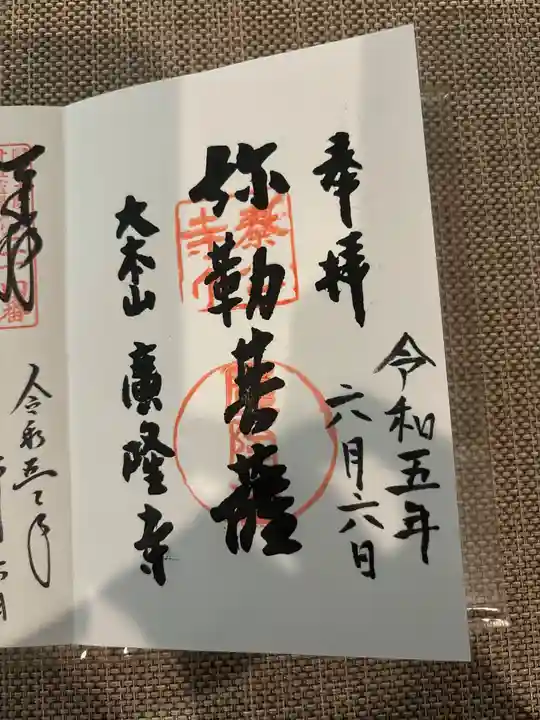 奉拝
令和五年
六月六日
弥勒菩薩
大本山 廣隆寺
令和五年